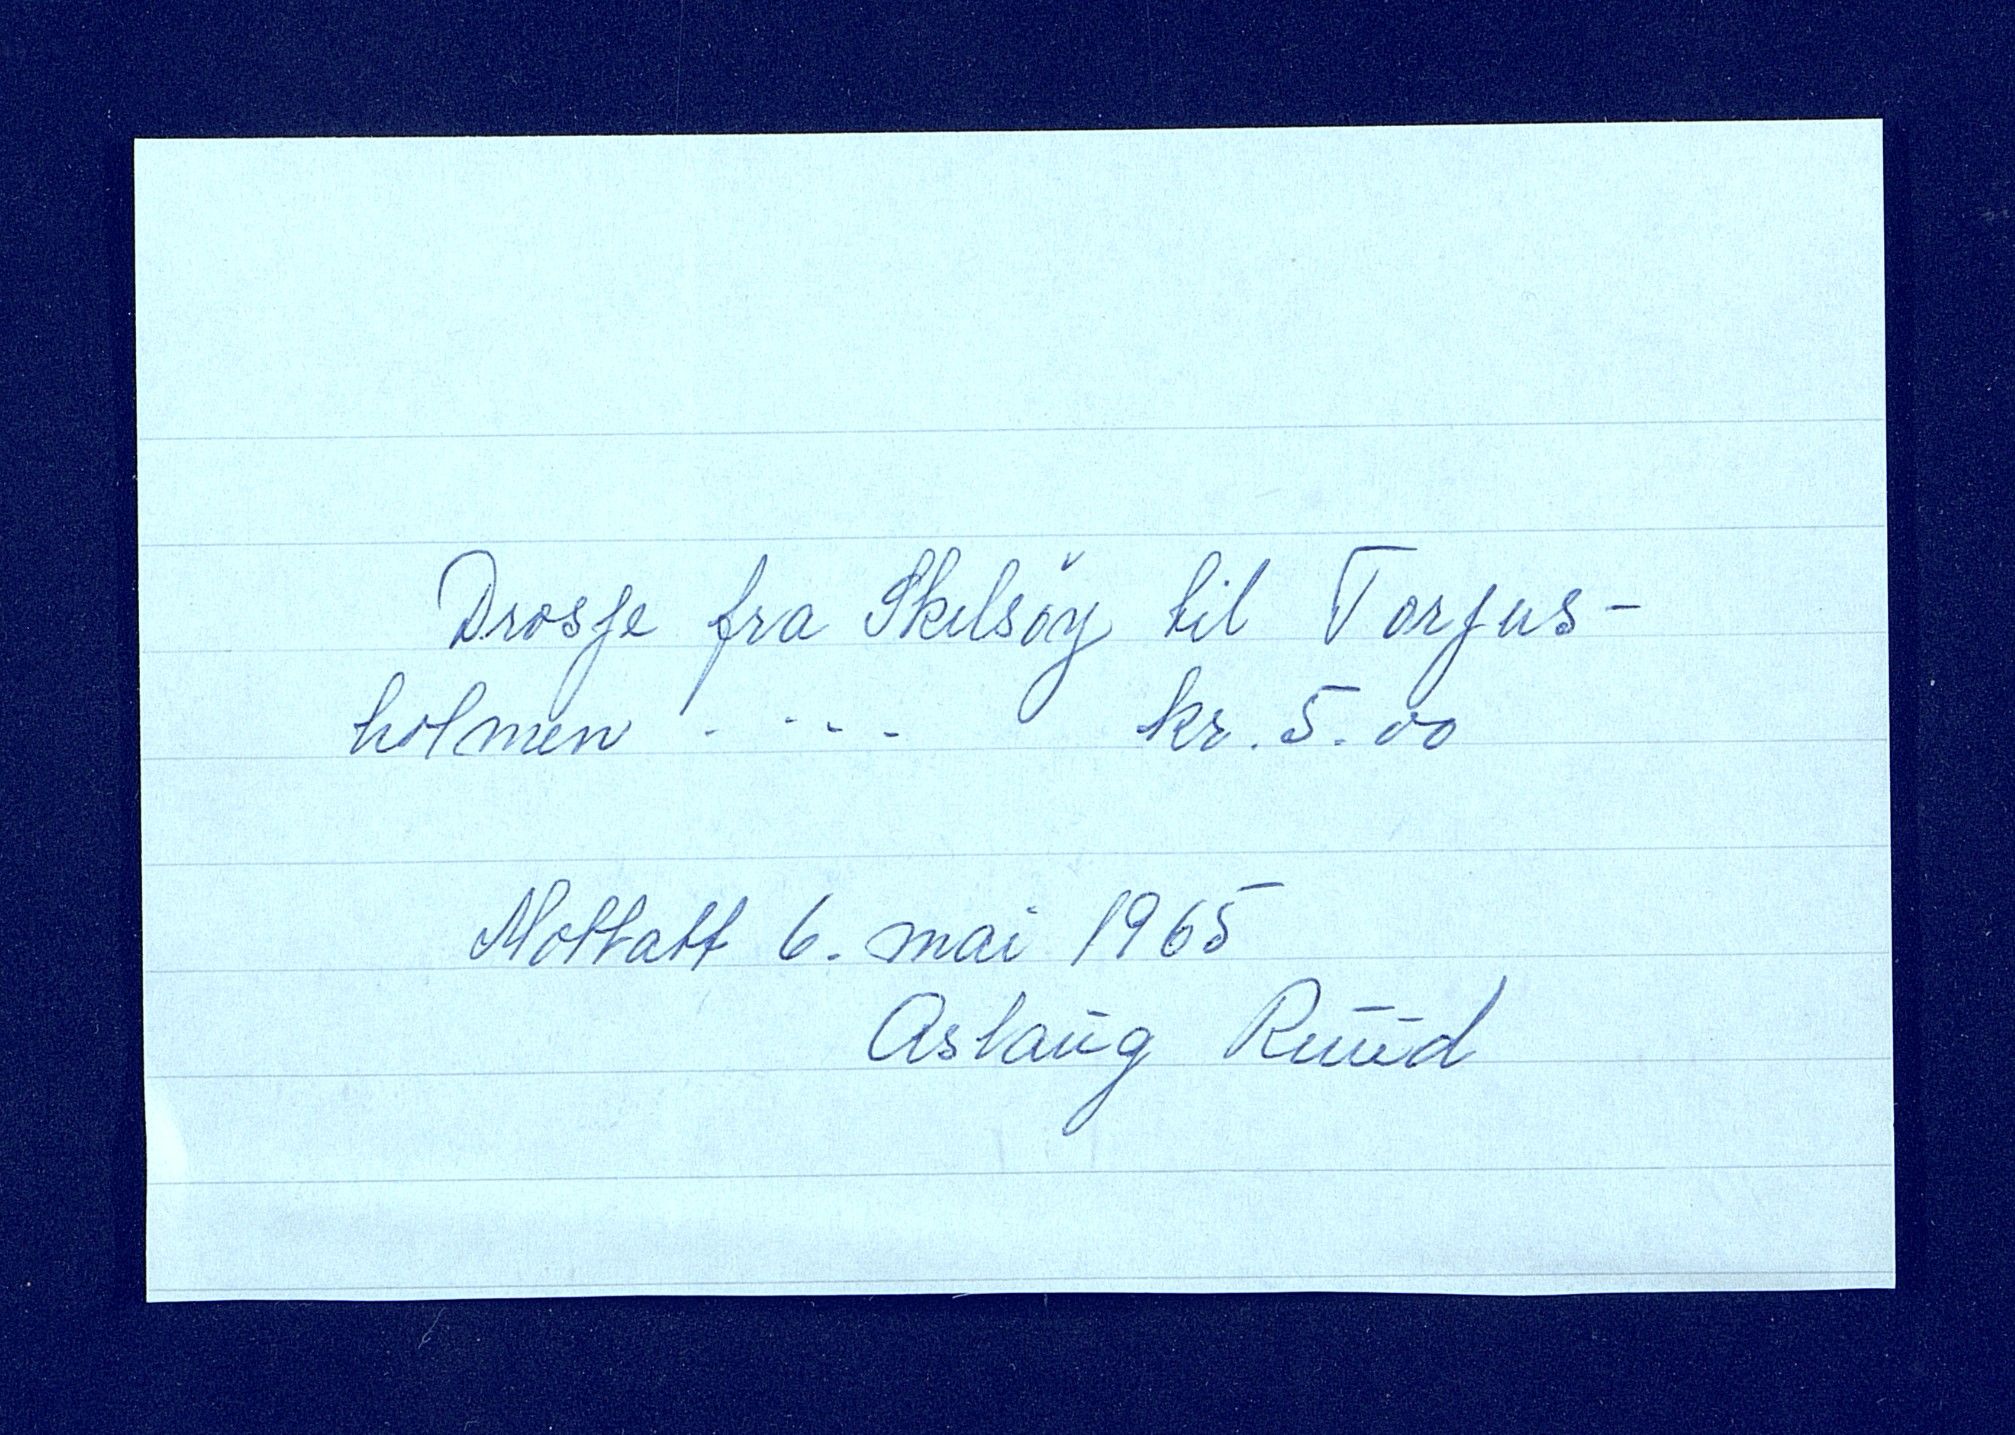 Drosje fra Skilsöy til Torjus-
holmen - - - - kr. 5.00
Mottatt 6. mai 1965
Aslaug Ruud